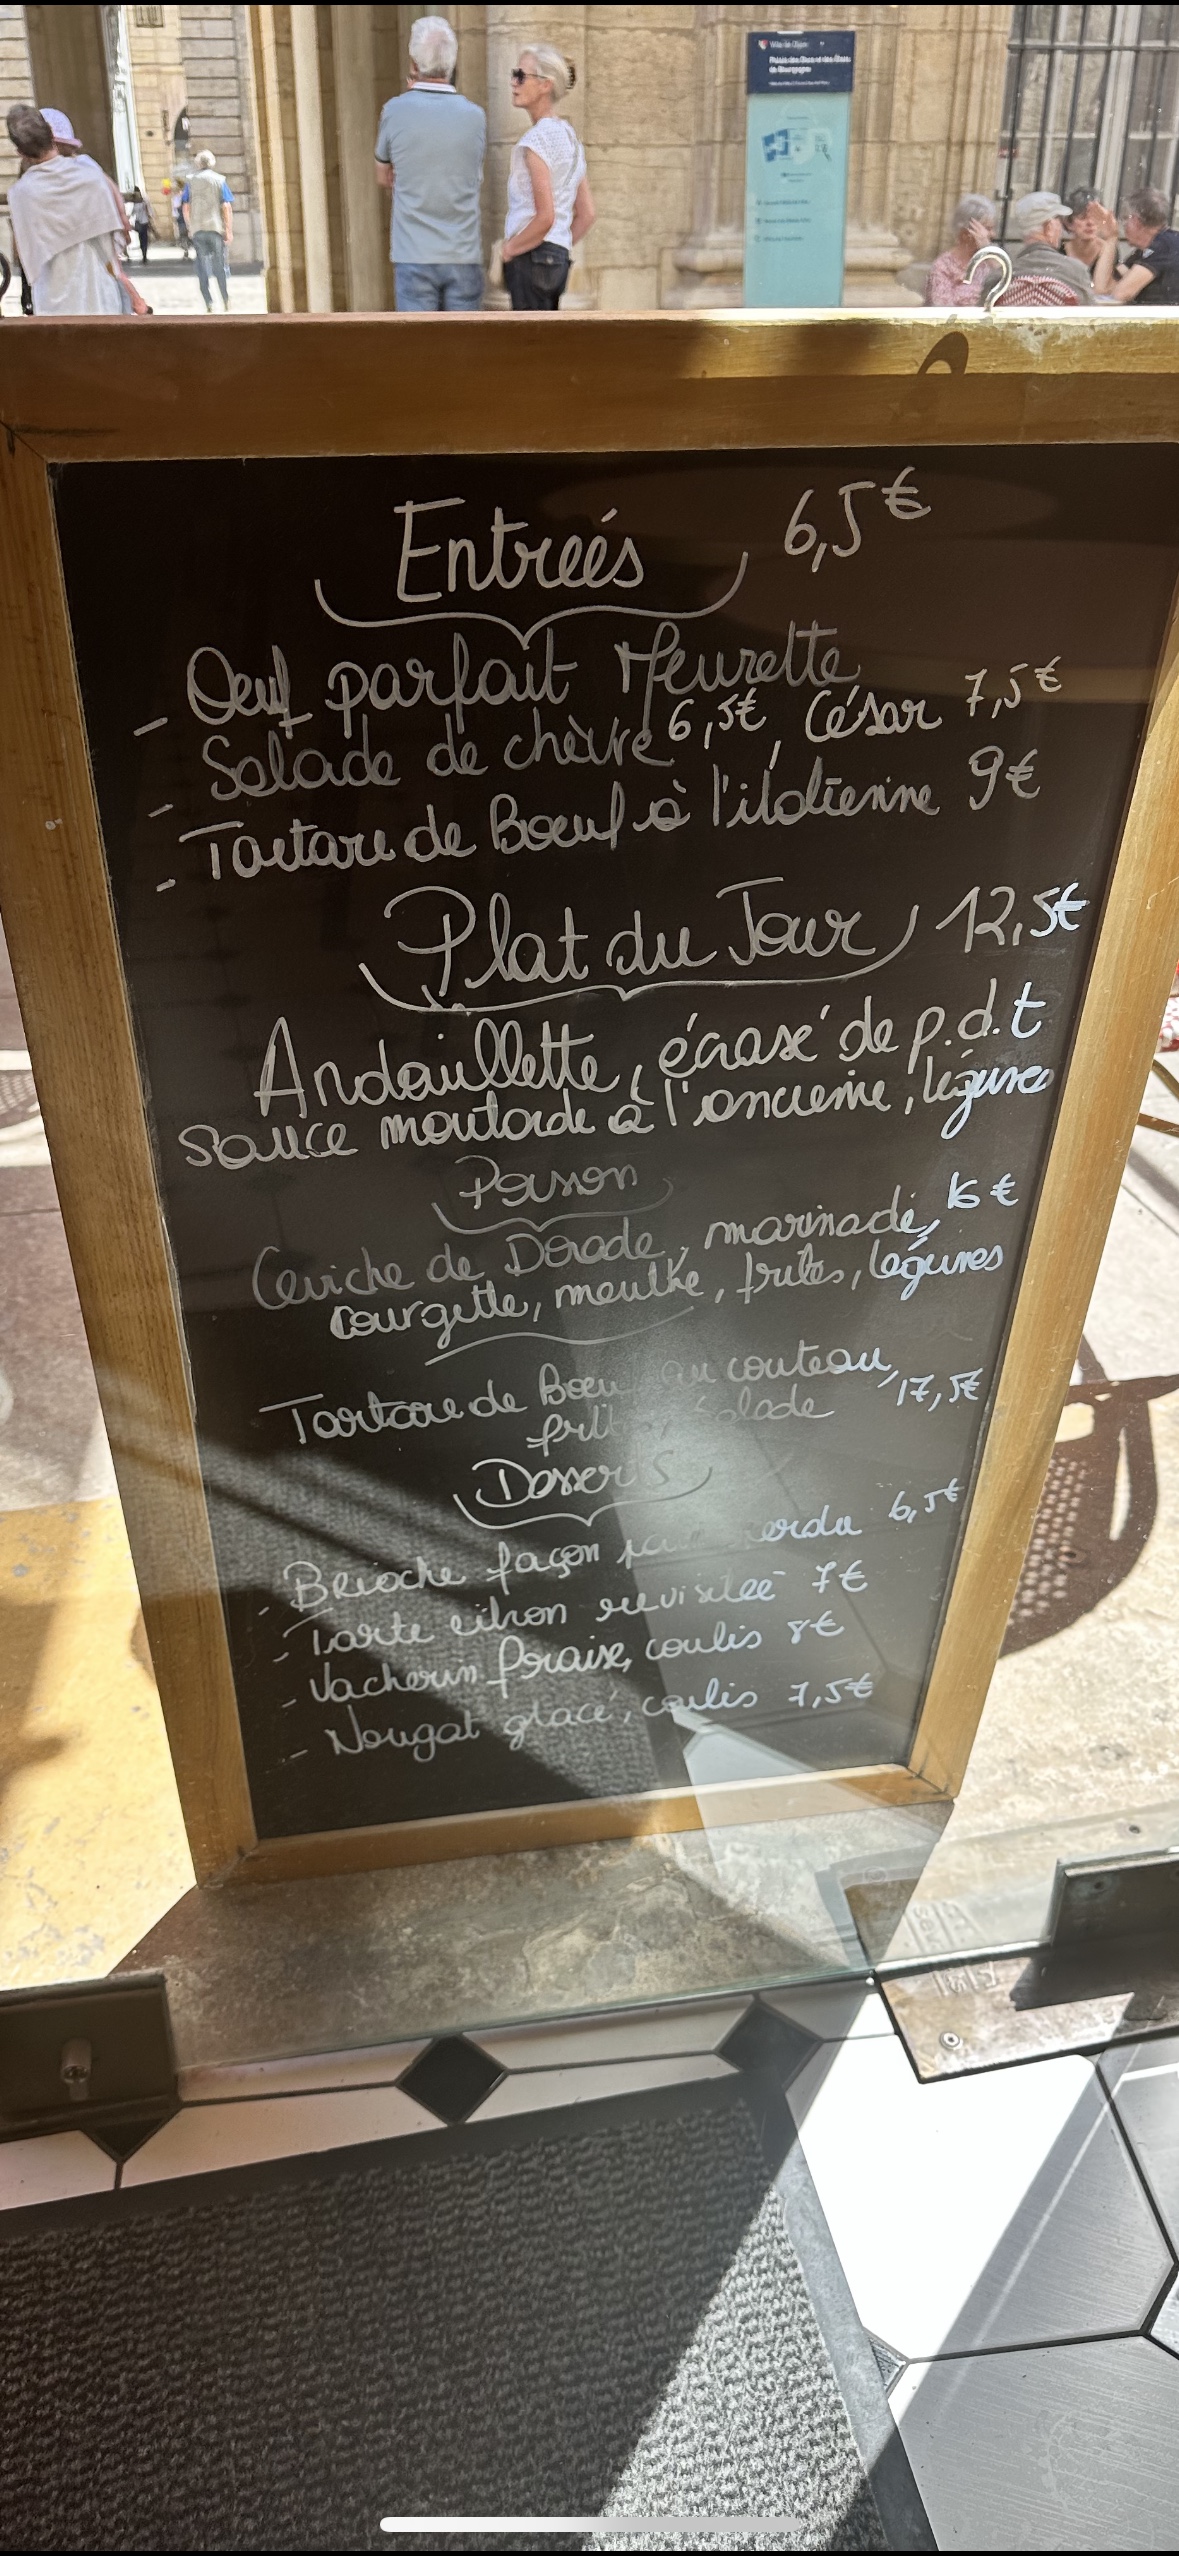 Ville de Dijon
Palais des Ducs et des États
de Bourgogne
Entrées 6,5€
- Oeuf parfait Meurette
- Salade de chèvre 6,5€, César 7,5€
- Tartare de Boeuf à l'italienne 9€
Plat du Jour 12,5€
Andouillette, écrasé de p.d.t
sauce moutarde à l'ancienne, légumes
Poisson
Ceviche de Dorade, marinade, 16€
courgette, menthe, frites, légumes
Tartare de Boeuf au couteau, 17,5€
frites, salade
Desserts
- Brioche façon pain perdu 6,5€
- Tarte citron revisitée 7€
- Vacherin fraise, coulis 8€
- Nougat glacé, coulis 7,5€